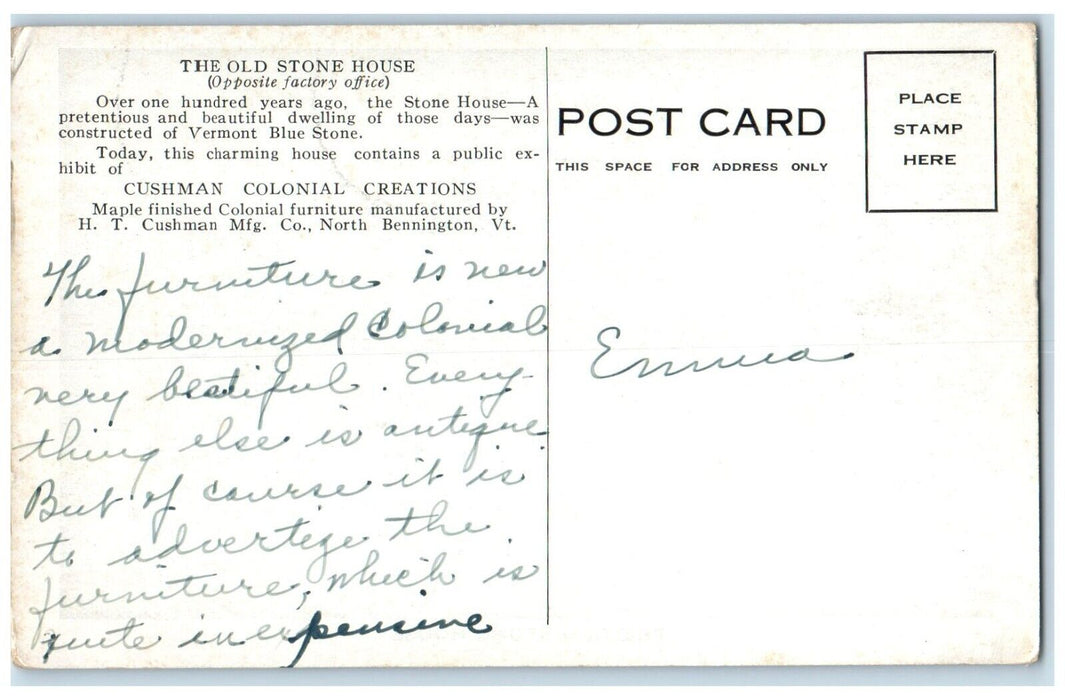 THE OLD STONE HOUSE
(Opposite factory office)
Over one hundred years ago, the Stone House—A
pretentious and beautiful dwelling of those days—was
constructed of Vermont Blue Stone.
Today, this charming house contains a public ex-
hibit of
CUSHMAN COLONIAL CREATIONS
Maple finished Colonial furniture manufactured by
H. T. Cushman Mfg. Co., North Bennington, Vt.
The furniture is new
a modernized Colonial
very beatiful. Every-
thing else is antique
But of course it is
to advertize the
furniture, which is
quite inexpensive
POST CARD
THIS SPACE FOR ADDRESS ONLY
PLACE
STAMP
HERE
Emma